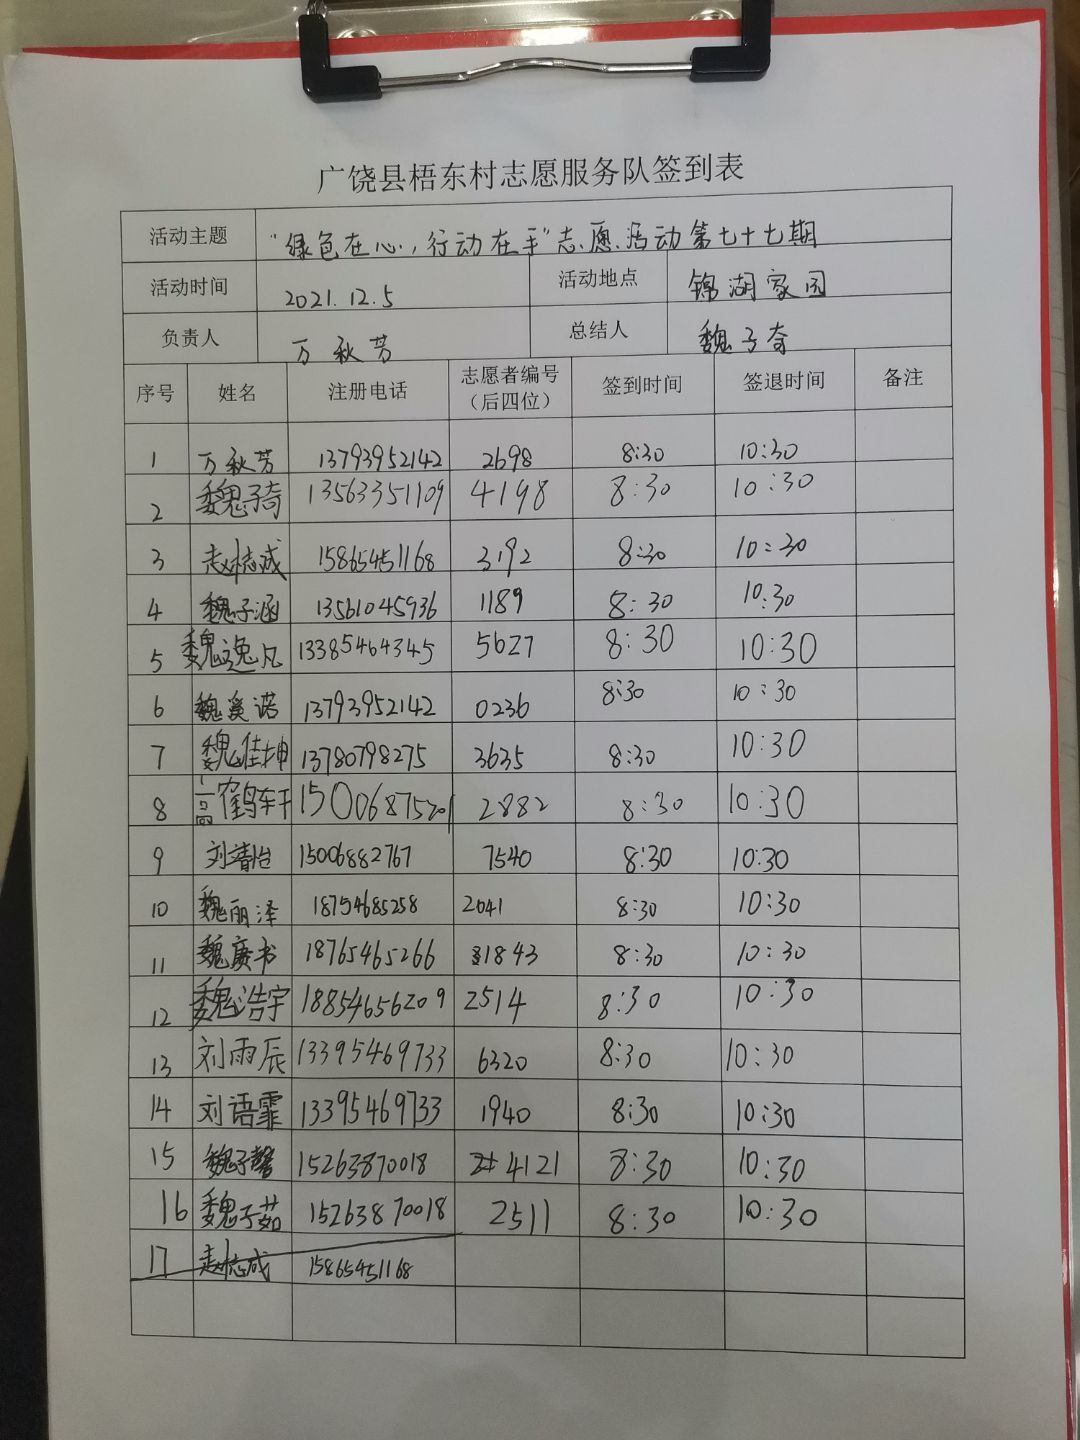 广饶县梧东村志愿服务队签到表
活动主题 “绿色在心，行动在手”志愿活动第七十七期
活动时间 2021.12.5 活动地点 锦湖家园
负责人 万秋芳 总结人 魏子奇
序号 姓名 注册电话 志愿者编号（后四位） 签到时间 签退时间 备注
1 万秋芳 13793952142 2698 8:30 10:30
2 魏子奇 13563351109 4198 8:30 10:30
3 赵志诚 15865451168 3192 8:30 10:30
4 魏子涵 13561045936 1189 8:30 10:30
5 魏逸凡 13385464345 5627 8:30 10:30
6 魏奚诺 13793952142 0236 8:30 10:30
7 魏佳坤 13780798275 3635 8:30 10:30
8 高鹤轩 15006875201 2882 8:30 10:30
9 刘靖怡 15006882767 7540 8:30 10:30
10 魏丽泽 18754685258 2041 8:30 10:30
11 魏赓书 18765465266 1843 8:30 10:30
12 魏浩宇 18854656209 2514 8:30 10:30
13 刘雨辰 13395469733 6320 8:30 10:30
14 刘语霏 13395469733 1940 8:30 10:30
15 魏子馨 15263870018 4121 8:30 10:30
16 魏子茹 15263870018 2511 8:30 10:30
17 赵志成 15865451168